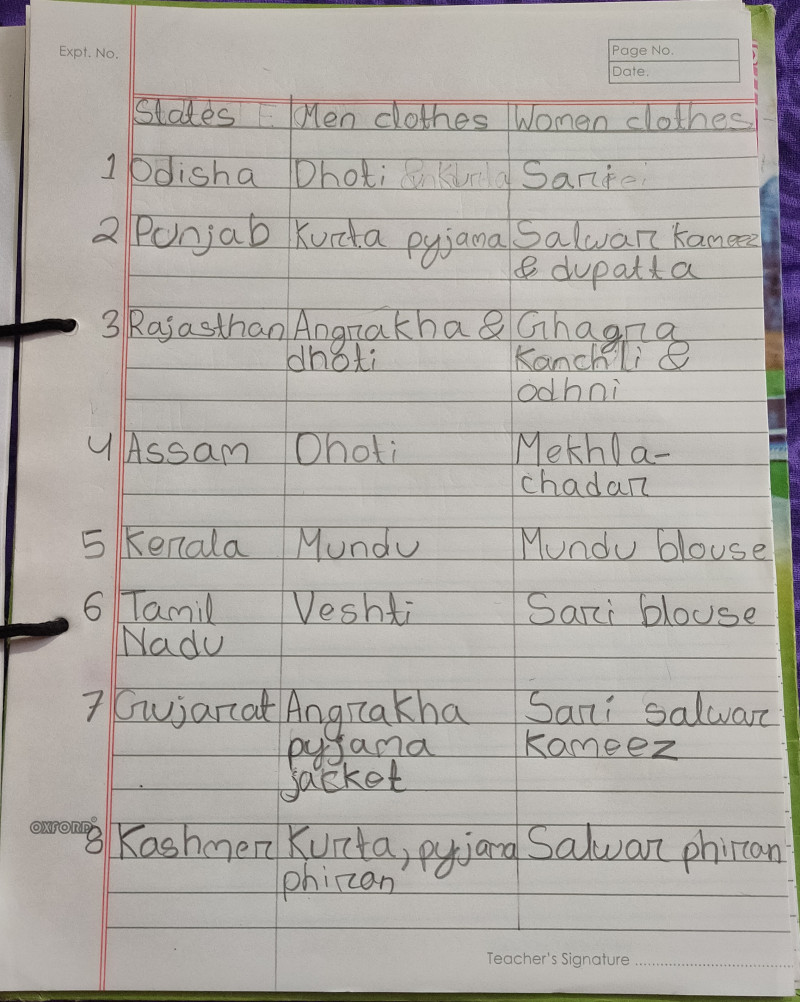 Expt. No.
Page No.
Date.
States Men clothes Women clothes
1 Odisha Dhoti & Kurta Sari
2 Punjab Kurta pyjama Salwar kameez
& dupatta
3 Rajasthan Angrakha & Ghagra
dhoti Kanchli &
odhni
4 Assam Dhoti Mekhla-
chadar
5 Kerala Mundu Mundu blouse
6 Tamil Veshti Sari blouse
Nadu
7 Gujarat Angrakha Sari salwar
pyjama kameez
jacket
OXFORD
8 Kashmer Kurta, pyjama Salwar phiran
phiran
Teacher's Signature